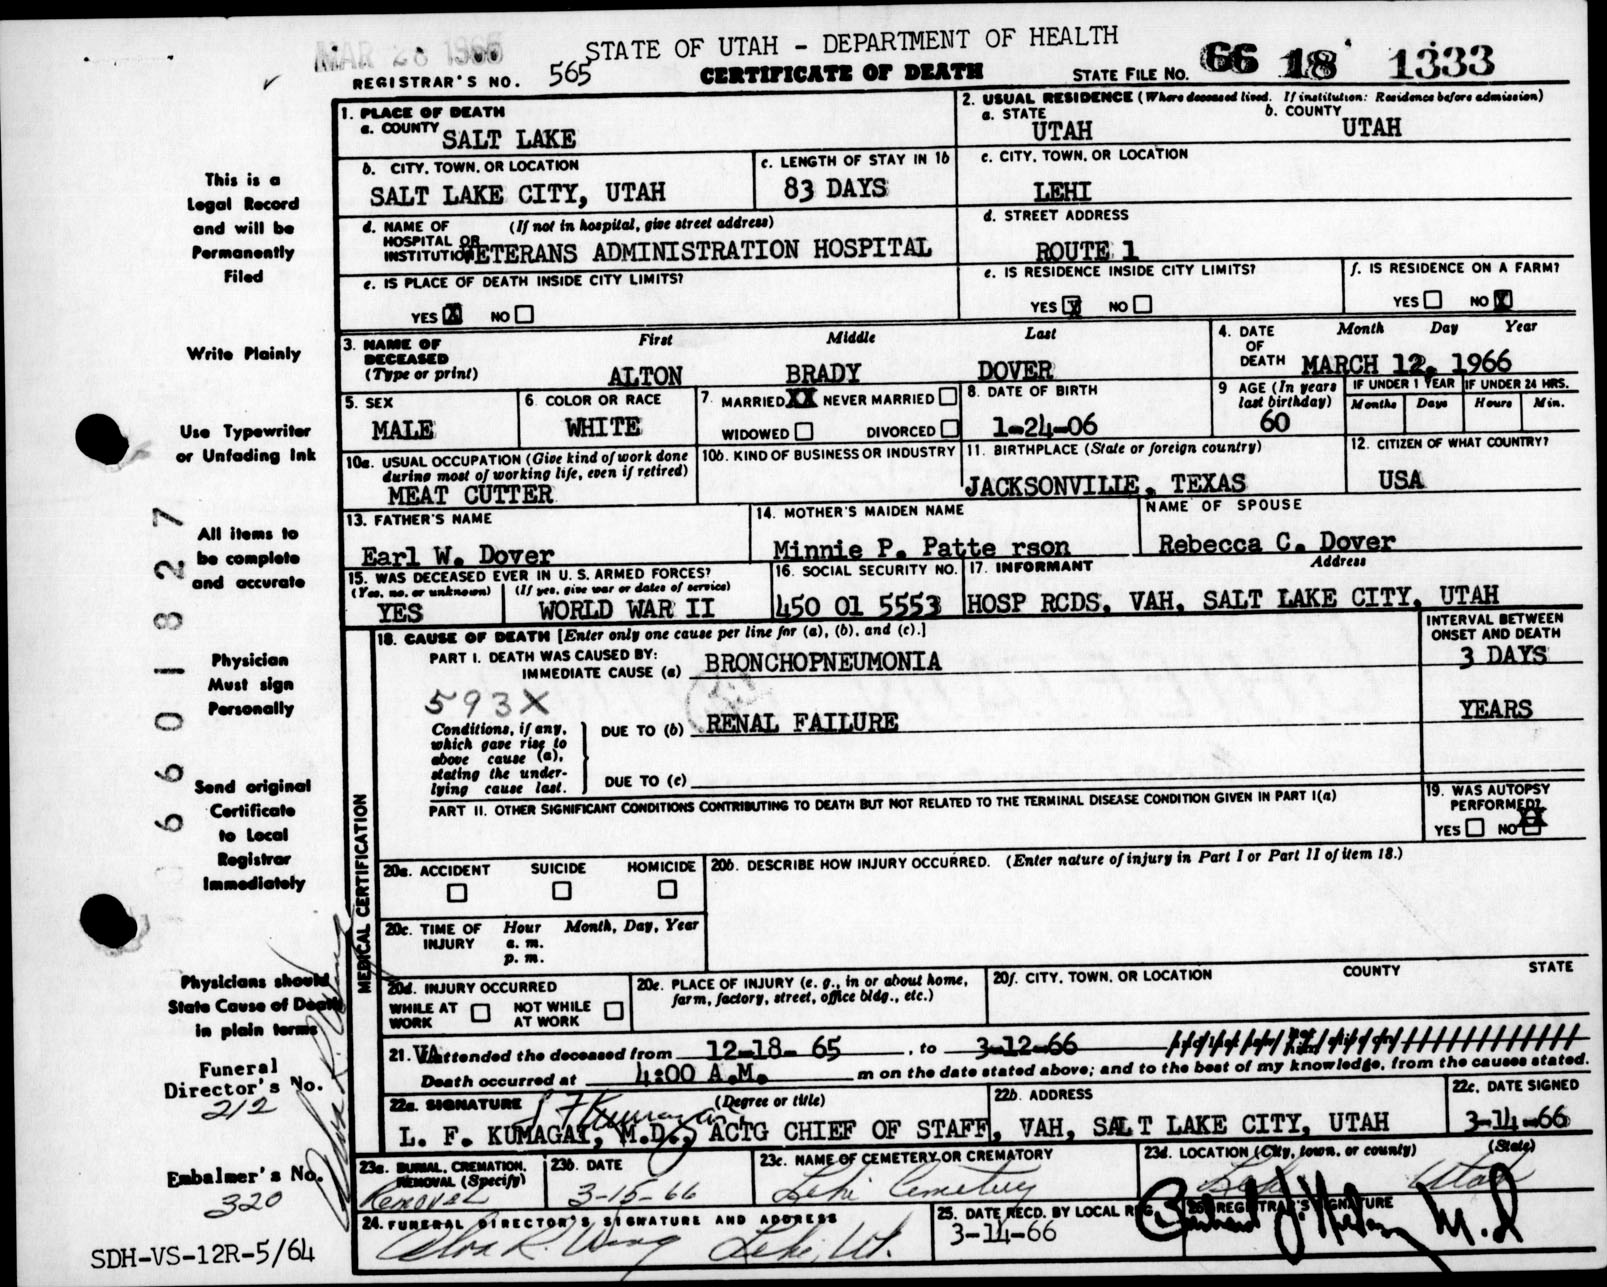 MAR 28 1966
STATE OF UTAH - DEPARTMENT OF HEALTH
REGISTRAR'S NO. 565
CERTIFICATE OF DEATH
STATE FILE NO. 66 18 1333
1. PLACE OF DEATH
a. COUNTY SALT LAKE
2. USUAL RESIDENCE (Where deceased lived. If institution: Residence before admission)
a. STATE UTAH
b. COUNTY UTAH
b. CITY, TOWN, OR LOCATION
SALT LAKE CITY, UTAH
c. LENGTH OF STAY IN 1b
83 DAYS
c. CITY, TOWN, OR LOCATION
LEHI
d. NAME OF HOSPITAL OR INSTITUTION (If not in hospital, give street address)
VETERANS ADMINISTRATION HOSPITAL
d. STREET ADDRESS
ROUTE 1
e. IS PLACE OF DEATH INSIDE CITY LIMITS?
YES X NO
e. IS RESIDENCE INSIDE CITY LIMITS?
YES X NO
f. IS RESIDENCE ON A FARM?
YES NO X
3. NAME OF DECEASED (Type or print)
First Middle Last
ALTON BRADY DOVER
4. DATE OF DEATH Month Day Year
MARCH 12, 1966
5. SEX
MALE
6 COLOR OR RACE
WHITE
7. MARRIED XX NEVER MARRIED
WIDOWED DIVORCED
8. DATE OF BIRTH
1-24-06
9 AGE (In years last birthday)
60
IF UNDER 1 YEAR
Months Days
IF UNDER 24 HRS.
Hours Min.
10a. USUAL OCCUPATION (Give kind of work done during most of working life, even if retired)
MEAT CUTTER
10b. KIND OF BUSINESS OR INDUSTRY
11. BIRTHPLACE (State or foreign country)
JACKSONVILLE, TEXAS
12. CITIZEN OF WHAT COUNTRY?
USA
13. FATHER'S NAME
Earl W. Dover
14. MOTHER'S MAIDEN NAME
Minnie P. Patte rson
NAME OF SPOUSE
Rebecca C. Dover
15. WAS DECEASED EVER IN U. S. ARMED FORCES?
(Yes, no, or unknown) (If yes, give war or dates of service)
YES WORLD WAR II
16. SOCIAL SECURITY NO.
450 01 5553
17. INFORMANT Address
HOSP RCDS, VAH, SALT LAKE CITY, UTAH
MEDICAL CERTIFICATION
18. CAUSE OF DEATH [Enter only one cause per line for (a), (b), and (c).]
INTERVAL BETWEEN ONSET AND DEATH
PART I. DEATH WAS CAUSED BY:
IMMEDIATE CAUSE (a) BRONCHOPNEUMONIA
3 DAYS
593X
Conditions, if any, which gave rise to above cause (a), stating the underlying cause last.
DUE TO (b) RENAL FAILURE
YEARS
DUE TO (c)
PART II. OTHER SIGNIFICANT CONDITIONS CONTRIBUTING TO DEATH BUT NOT RELATED TO THE TERMINAL DISEASE CONDITION GIVEN IN PART I(a)
19. WAS AUTOPSY PERFORMED?
YES NO XX
20a. ACCIDENT SUICIDE HOMICIDE
20b. DESCRIBE HOW INJURY OCCURRED. (Enter nature of injury in Part I or Part II of item 18.)
20c. TIME OF INJURY Hour Month, Day, Year
a. m.
p. m.
20d. INJURY OCCURRED
WHILE AT WORK NOT WHILE AT WORK
20e. PLACE OF INJURY (e. g., in or about home, farm, factory, street, office bldg., etc.)
20f. CITY, TOWN, OR LOCATION COUNTY STATE
21. VA attended the deceased from 12-18-65, to 3-12-66
Death occurred at 4:00 A.M. m on the date stated above; and to the best of my knowledge, from the causes stated.
22a. SIGNATURE (Degree or title)
L. F. KUMAGAI, M.D., ACTG CHIEF OF STAFF, VAH, SALT LAKE CITY, UTAH
22b. ADDRESS
22c. DATE SIGNED
3-14-66
23a. BURIAL, CREMATION, REMOVAL (Specify)
Removal
23b. DATE
3-15-66
23c. NAME OF CEMETERY OR CREMATORY
Lehi Cemetery
23d. LOCATION (City, town, or county) (State)
Lehi Utah
24. FUNERAL DIRECTOR'S SIGNATURE AND ADDRESS
Alva R. Wing Lehi, Ut.
25. DATE RECD. BY LOCAL REG.
3-14-66
26. REGISTRAR'S SIGNATURE
M.D
This is a
Legal Record
and will be
Permanently
Filed
Write Plainly
Use Typewriter
or Unfading Ink
All items to
be complete
and accurate
Physician
Must sign
Personally
Send original
Certificate
to Local
Registrar
Immediately
Physicians should
State Cause of Death
in plain terms
Funeral
Director's No.
212
Embalmer's No.
320
SDH-VS-12R-5/64
066601827